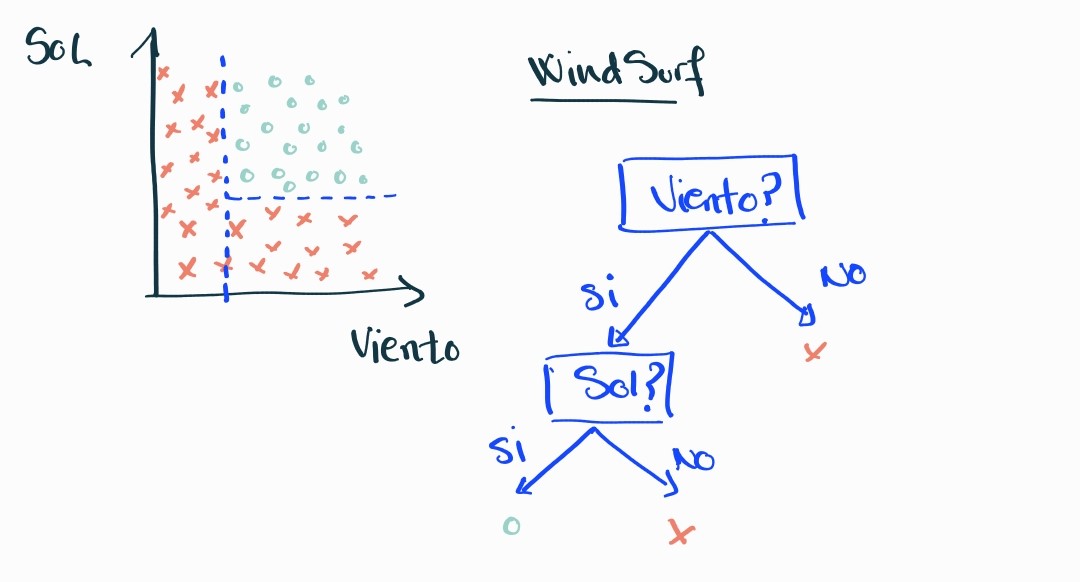 Sol
Viento
WindSurf
Viento?
Si
No
Sol?
Si
No